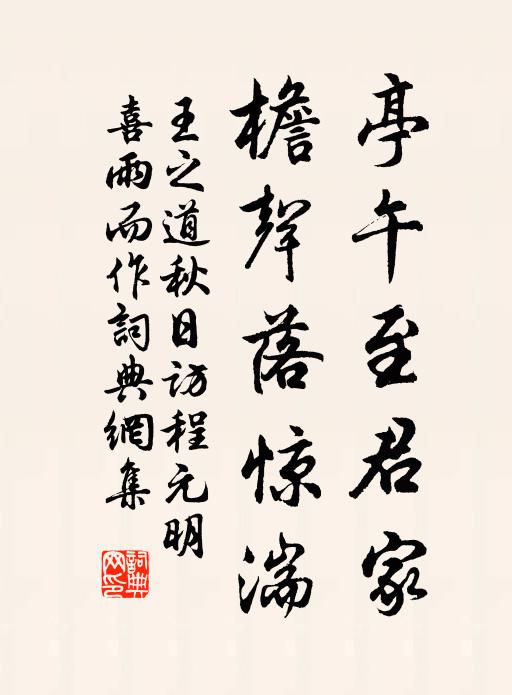 亭午至君家
檐聲落惊湍
王之道秋日訪程元明
喜雨而作詞典網集
詞典网印